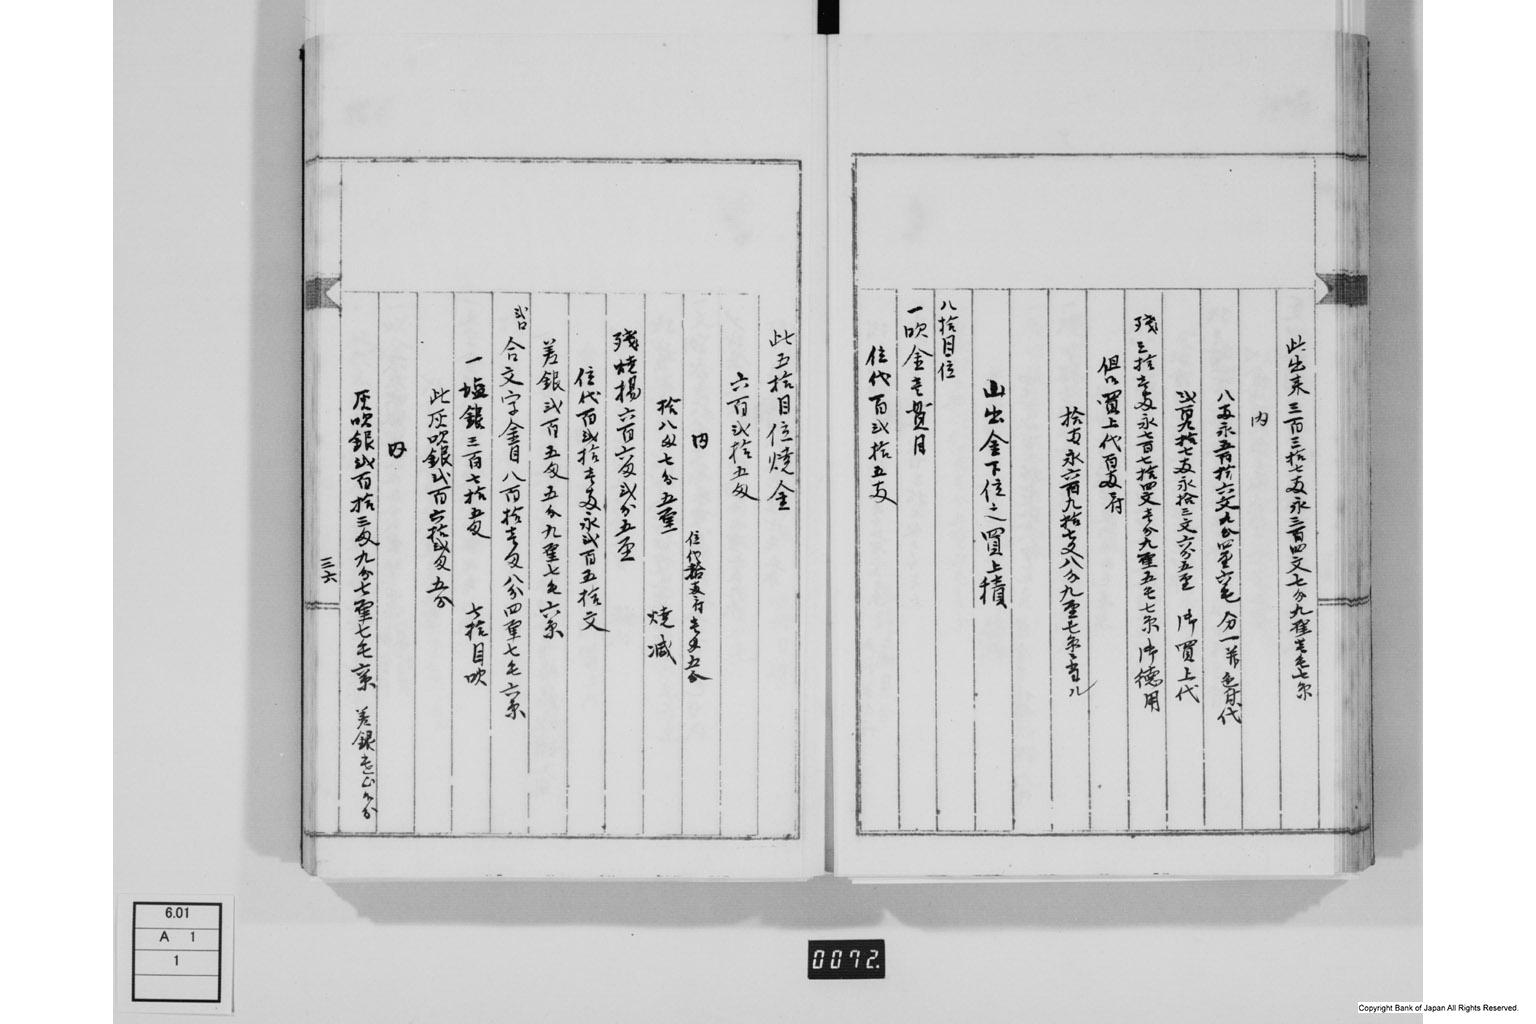 此出来三百三拾七両永三百四文七分九厘壱毛七糸
内
八両永五百拾六文九分四厘六毛 分一并色付代
弐百九拾七両永拾三文六分五厘 御買上代
残三拾壱両永七百七拾四文壱分九厘五毛七糸御徳用
但買上代百両ニ付
拾両永六百九拾七文八分九厘七糸ニ当ル
山出金下位之買上積
八拾目位
一吹金壱貫目
位代百弐拾五両
此五拾目位焼金
六百弐拾五匁
内 位代拾両ニ付壱匁五分
拾八匁七分五厘 焼減
残焼揚六百六匁弐分五厘
位代百弐拾壱両永弐百五拾文
差銀弐百五匁五分九厘七毛六糸
合文字金目八百拾壱匁八分四厘七毛六糸
一塩銀三百七拾五匁 七拾目吹
此灰吹銀弐百六拾弐匁五分
内
灰吹銀弐百拾三匁九分七厘七毛
三六
6.01
A 1
1
0072.
Copyright Bank of Japan All Rights Reserved.